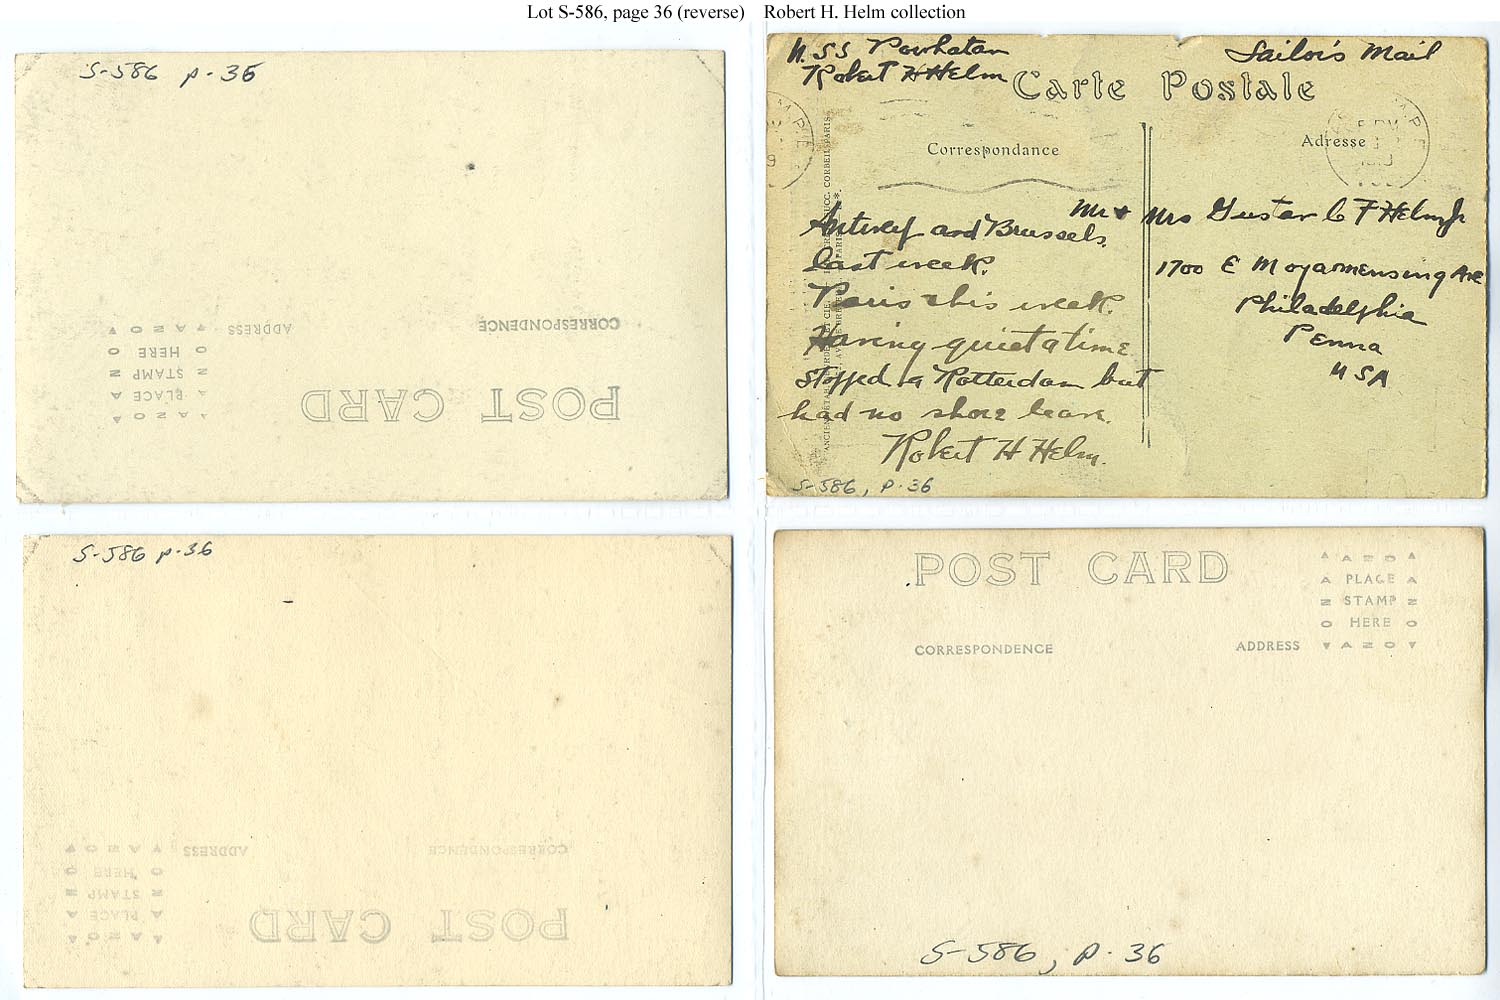 Lot S-586, page 36 (reverse) Robert H. Helm collection
S-586 p. 36
CORRESPONDENCE
ADDRESS
POST CARD
PLACE
STAMP
HERE
AZO
U.S.S Powhatan
Robert H Helm
Sailor's Mail
Carte Postale
Correspondance
Adresse
Antwep and Brussels
last week.
Paris this week.
Having quiet a time
stopped a Rotterdam but
had no shore leave.
Robert H Helm.
Mr + Mrs Gustav C F Helm Jr
1700 E Moyamensing Ave
Philadelphia
Penna
USA
S-586, p. 36
S-586 p. 36
CORRESPONDENCE
ADDRESS
POST CARD
PLACE
STAMP
HERE
AZO
POST CARD
CORRESPONDENCE
ADDRESS
AZO
PLACE
STAMP
HERE
AZO
S-586, p. 36